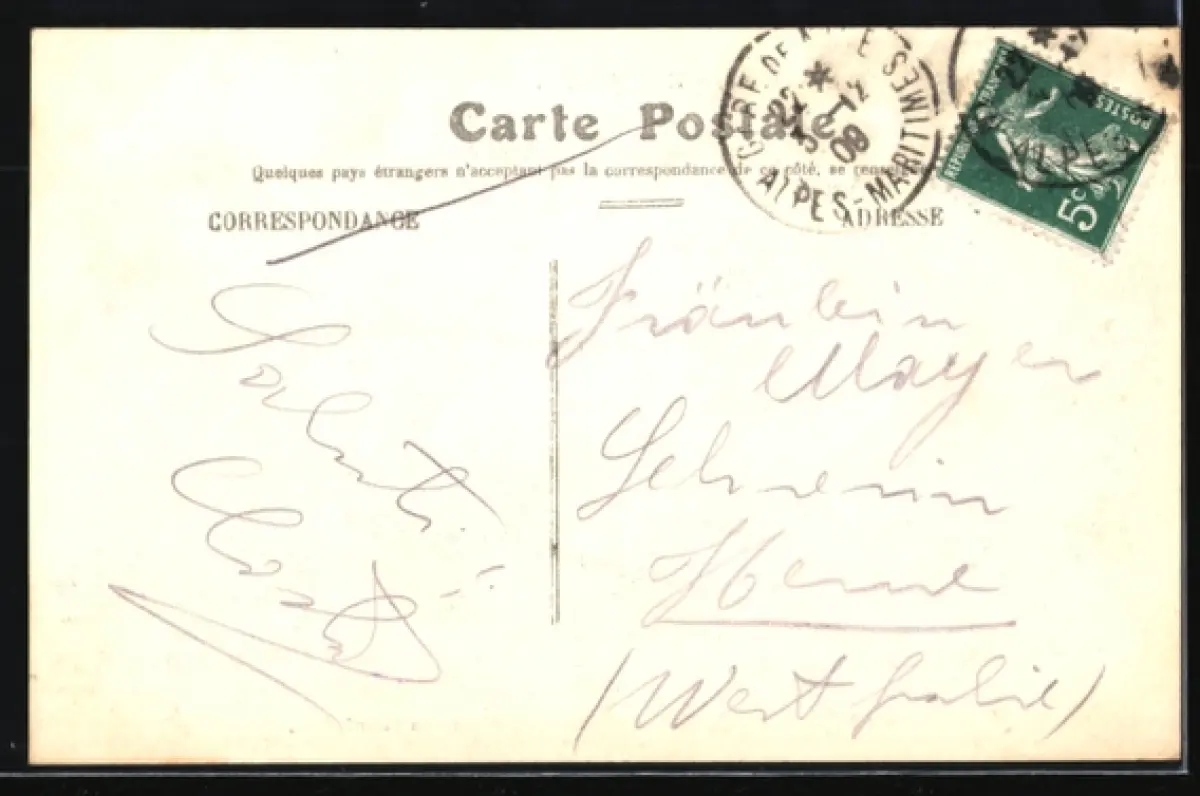 Carte Postale
Quelques pays étrangers n'acceptant pas la correspondance de ce côté, se
CORRESPONDANCE
ADRESSE
GARE DE NICE
ALPES-MARITIMES
22 - 12
08
REPUBLIQUE FRANÇAISE
POSTES
5c
ALPES
Fräulein
Mayer
Lehrerin
Herne
(Westfalie)